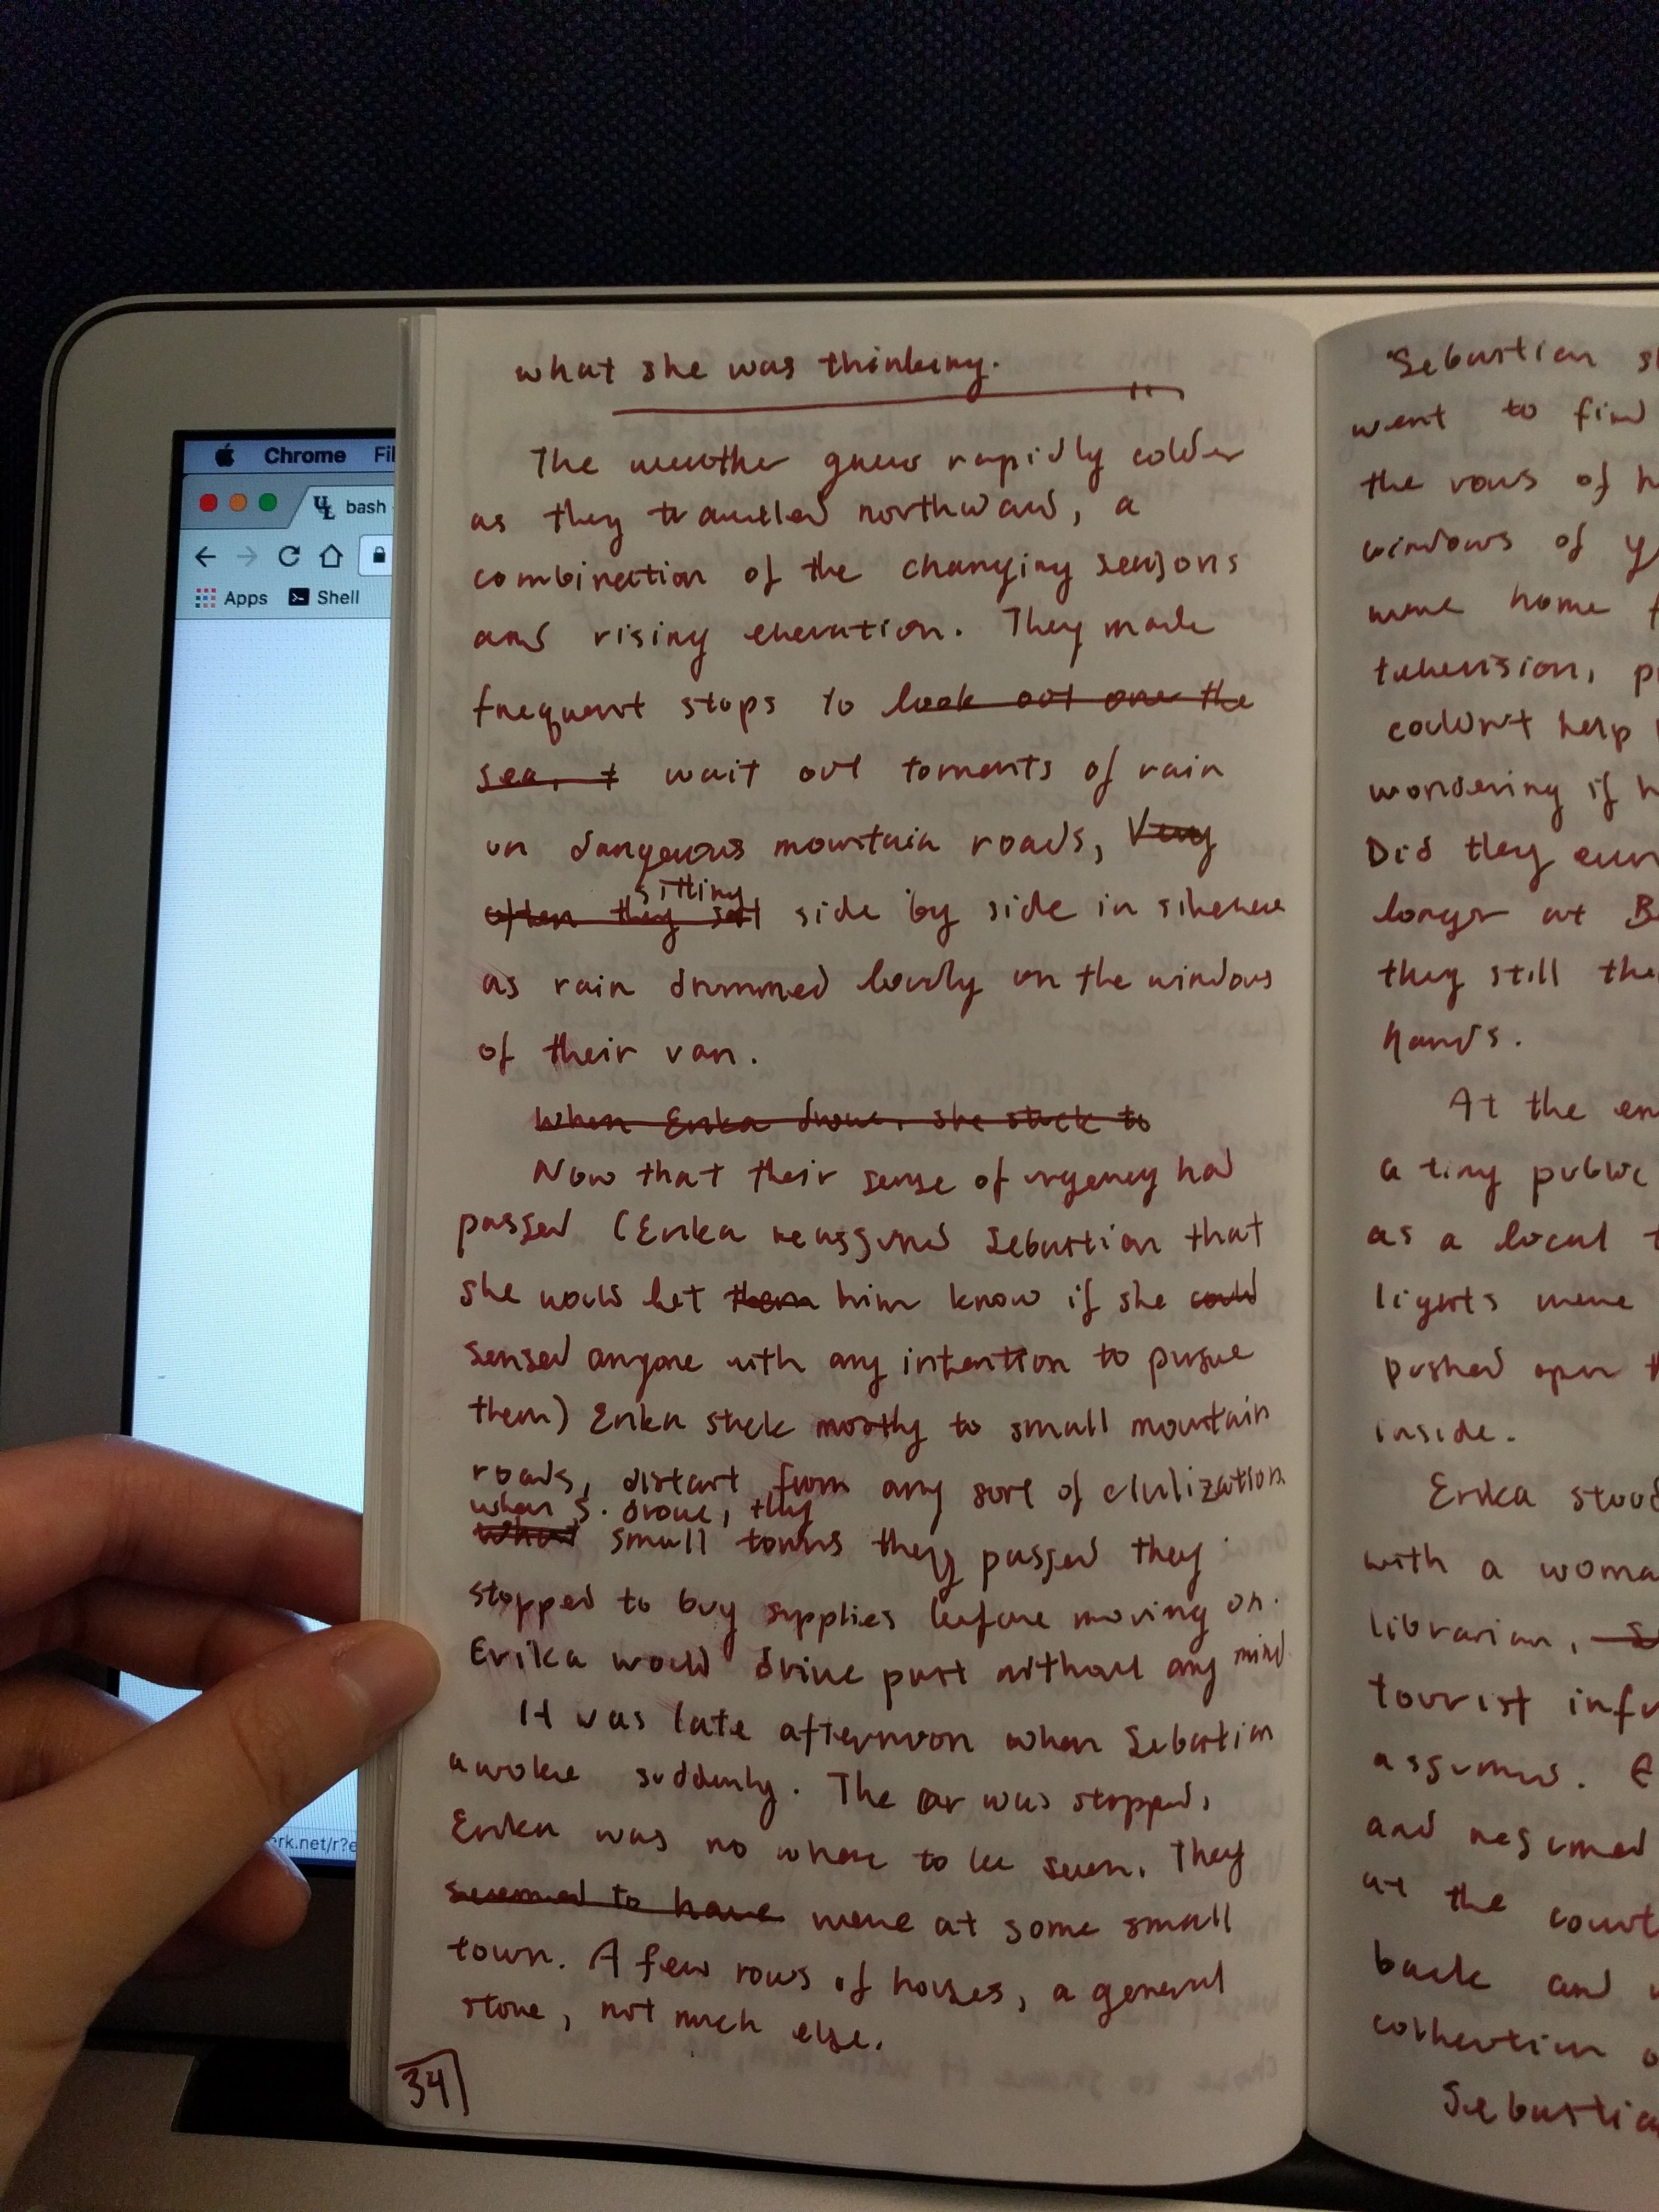 Chrome Fil
bash
Apps Shell
erk.net/r?e
what she was thinking.
The weather grew rapidly colder
as they travelled northward, a
combination of the changing seasons
and rising elevation. They made
frequent stops to look out over the
sea, t wait out torrents of rain
on dangerous mountain roads, Very
sitting
often they sat side by side in silence
as rain drummed loudly on the windows
of their van.
When Erika drove, she stuck to
Now that their sense of urgency had
passed (Erika reassured Sebastian that
she would let them him know if she could
sensed anyone with any intention to pursue
them) Erika stuck mostly to small mountain
roads, distant from any sort of civilization
when S. drove, they
small towns they passed they
stopped to buy supplies before moving on.
Erika would drive past without any mind
It was late afternoon when Sebastian
awoke suddenly. The car was stopped,
Erika was no where to be seen. They
seemed to have were at some small
town. A few rows of houses, a general
store, not much else.
34
Sebastian
went to find
the rows of
windows of
were home
television,
couldn't help
wondering if
Did they
longer at
they still
hands.
At the
a tiny public
as a local
lights were
pushed open
inside.
Erika
with a
librarian,
tourist
assumed.
and resumed
at the
back and
collection